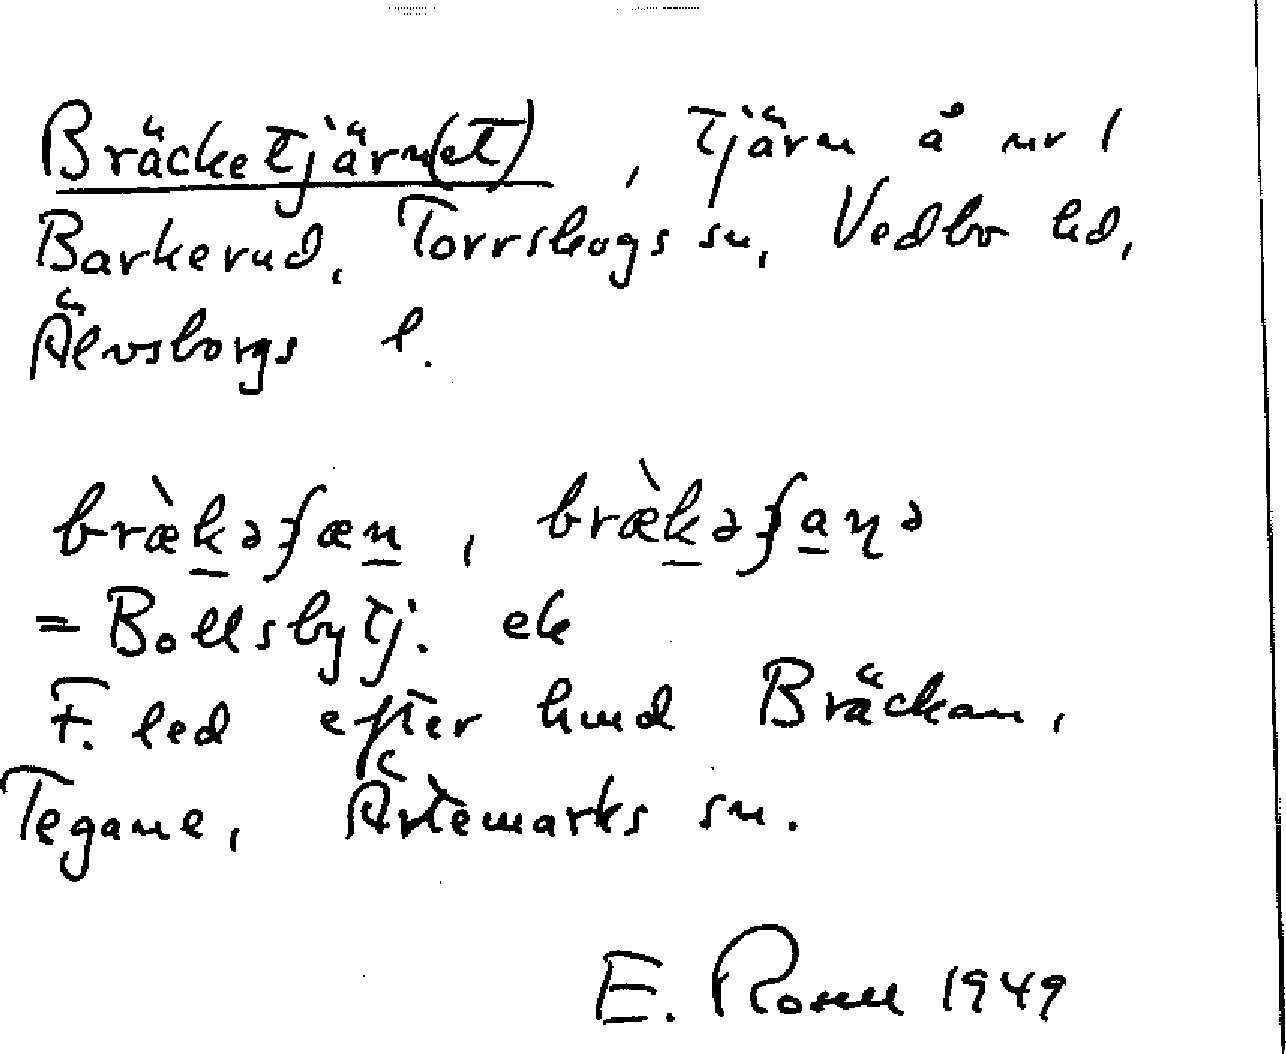 Bräcketjärn(et), tjärn å nr 1
Barkerud, Torrskogs sn, Vedbo hd,
Älvsborgs l.
bræ̀kəʃæn, bræ̀kəʃaɳə
= Bollsbytj. ek
F. led efter hmd Bräckan,
Tegane, Ärtemarks sn.
E. Rosell 1949